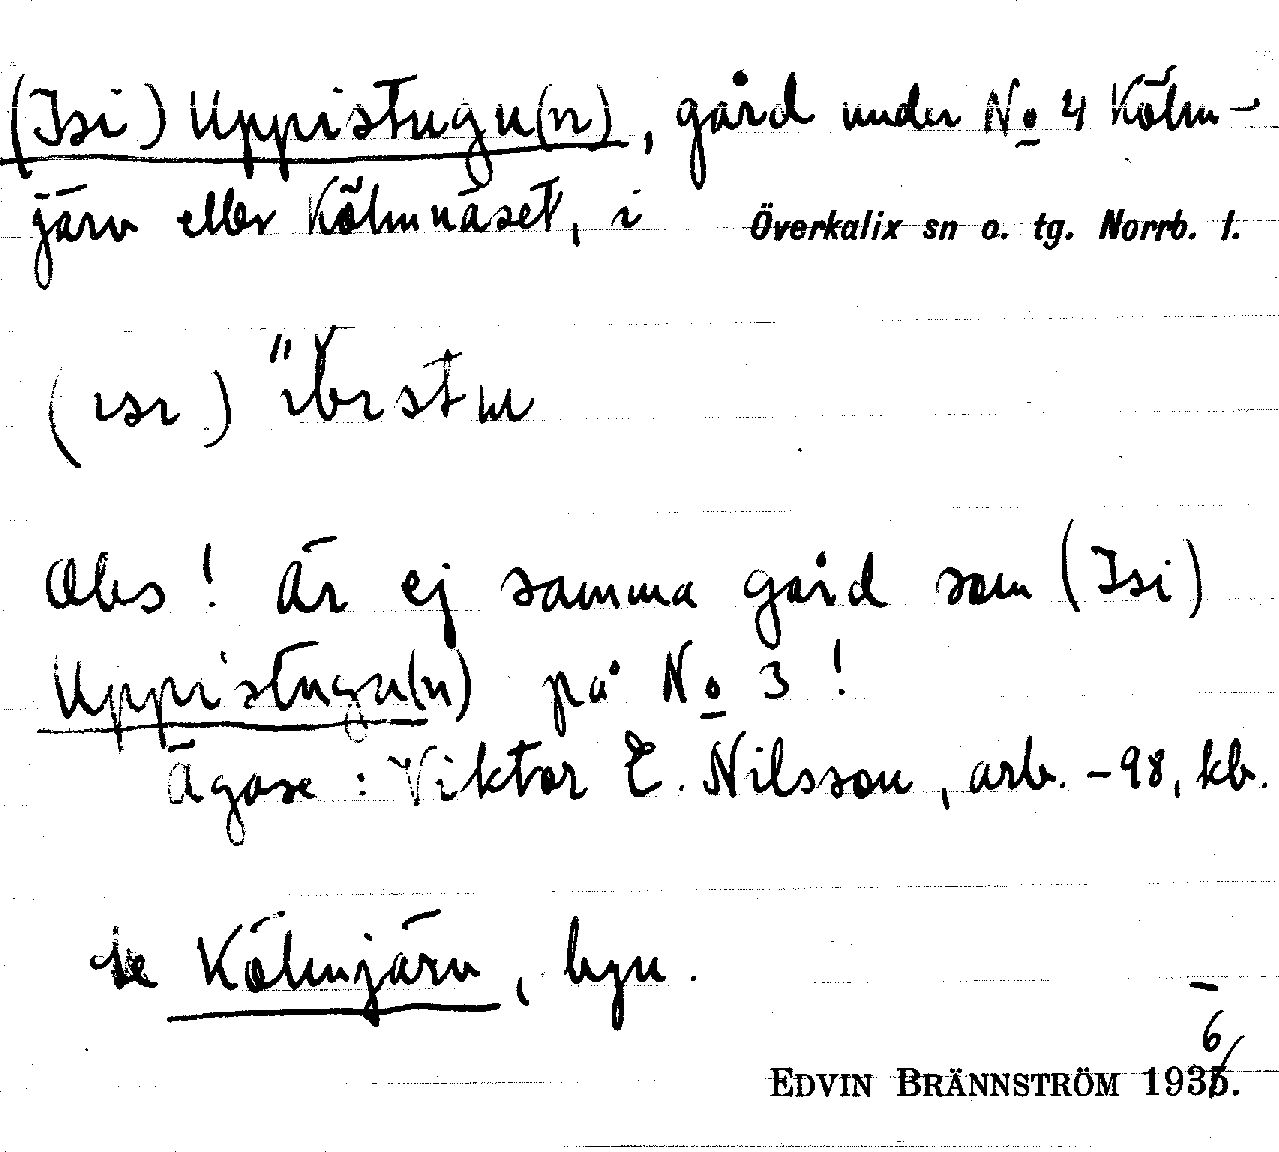 (Isi) Uppistugu(n), gård under No 4 Kölm-
järv eller Kölmnäset, i Överkalix sn o. tg. Norrb. l.
(ısı)
Obs! Är ej samma gård som (Isi)
Uppistugu(n) på No 3!
Ägare: Viktor E. Nilsson, arb. -98, kb.
se Kölmjärv, byn.
6
EDVIN BRÄNNSTRÖM 1935.